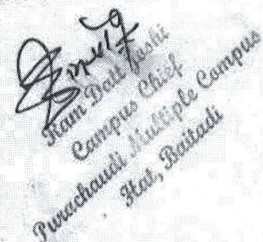 Ram Datt Joshi
Campus Chief
Purachaudi Multiple Campus
Hat, Baitadi